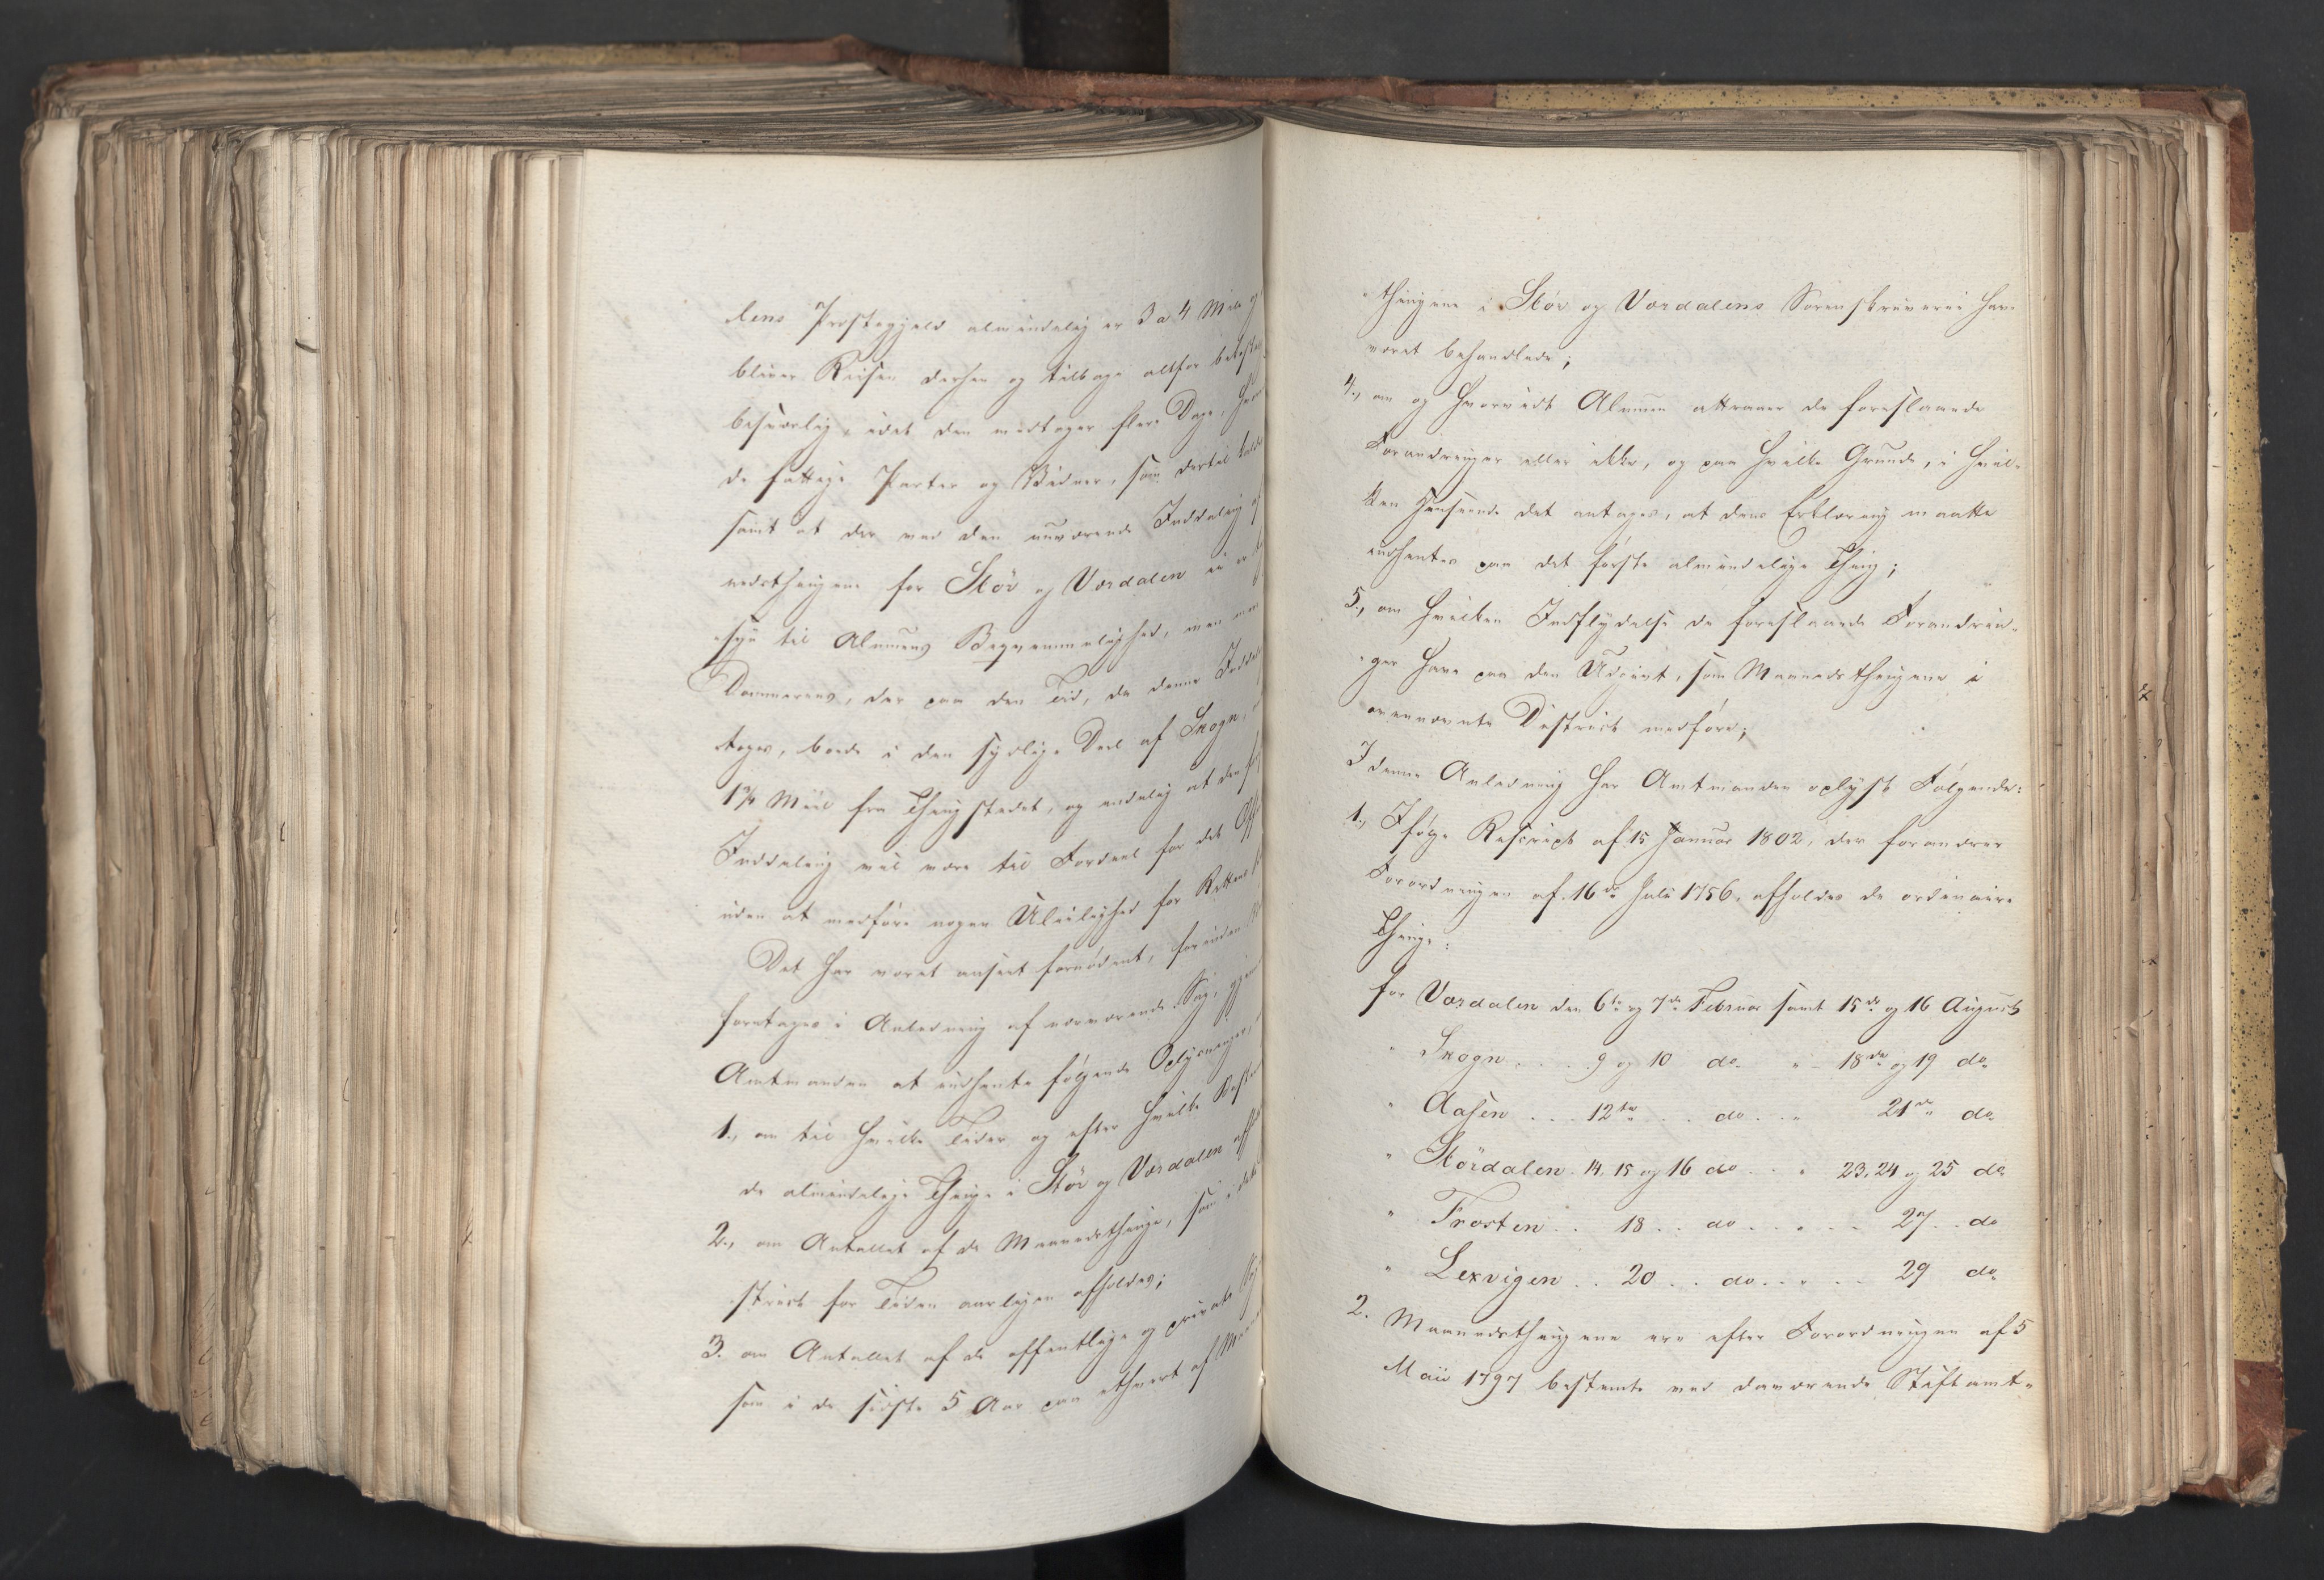 dens Præstegjeld almindelig er 3 a 4 Mile
bliver Reisen derhen og tilbage altfor
besværlig, idet den medtager flere Dage,
de fattige Parter og Vidner, som dertil
samt at der ved den nuværende Inddeling af
nedsthingene for Stör og Værdalen ei er
-syn til Almuens Beqvemmelighed, men
Dommerens, der paa den Tid, da denne
toges, boede i den sydlige Deel af Skogn,
1¼ Miil fra Thingstedet, og endelig at den
Inddeling vil være til Fordeel for det
uden at medføre nogen Uleilighed for Rettens
Det har været anseet fornødent, forinden
foretages i Anledning af nærværende Sag,
Amtmanden at indhente følgende Oplysninger,
1., om til hvilke Tider og efter hvilke
de almindelige Thinge i Stör og Værdalen
2., om Antallet af de Maanedsthinge, som i det
-strict for Tiden aarligen afholdes;
3. om Antallet af de offentlige og private
som i de sidste 5 Aar paa ethvert af
-thingene i Stör og Værdalens Sorenskriverie have
været behandlede;
4., om og hvorvidt Almuen attraaer de foreslaaede
Forandringer eller ikke, og paa hvilke Grunde, i hvil-
ken Henseende det antages, at dens Erklæring maatte
indhentes paa det første almindelige Thing;
5., om hvilken Indflydelse de foreslaaede Forandrin-
-ger have paa den Udgivt, som Maanedsthingene i
ovennævnte District medføre;
I denne Anledning har Amtmanden oplyst Følgende:
1., Ifølge Rescript af 15 Januar 1802, der forandrer
Forordningen af 16de Juli 1756, afholdes de ordinaire
Thinge:
for Værdalen den 6te og 7de Februar samt 15de og 16 August
" Skogn .... 9 og 10 do. " - 18de og 19 do.
" Aasen ... 12te .. do .. " 21de do.
" Stördalen . 14, 15 og 16 do .. " 23, 24 og 25 do
" Frosten .. 18 .. do .... - 27 .. do
" Lexvigen .. 20 .. do .. " .. - 29 do.
2. Maanedsthingene ere efter Forordningen af 5
Maii 1797 bestemte ved daværende Stiftamt-